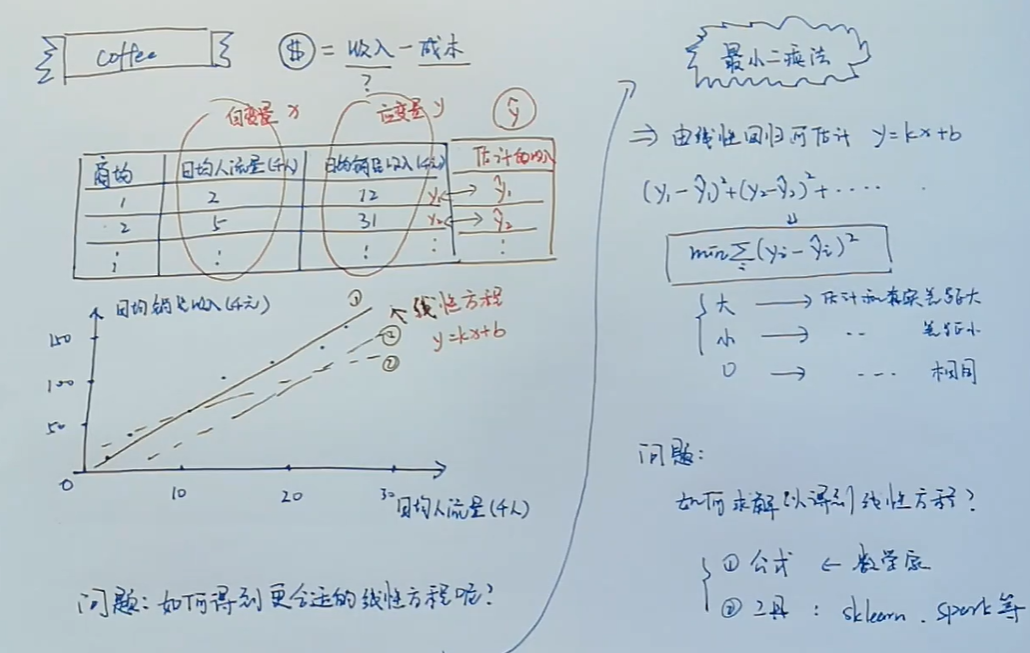 coffee
$ = 收入 - 成本
?
自变量 x
应变量 y
ŷ
商场 日均人流量(千人) 日均销售收入(千元) 估计的收入
1 2 12 y₁ ↔ ŷ₁
2 5 31 y₂ ↔ ŷ₂
⋮ ⋮ ⋮ ⋮ ⋮
日均销售收入(千元)
①
线性方程
y=kx+b
②
②
150
100
50
0
10 20 30
日均人流量(千人)
问题: 如何得到更合适的线性方程呢?
最小二乘法
⇒ 由线性回归可估计 y=kx+b
(y₁-ŷ₁)²+(y₂-ŷ₂)²+····
↓
min∑ᵢ(yᵢ-ŷᵢ)²
大 → 估计和真实差距大
小 → ·· 差距小
0 → --- 相同
问题:
如何求解以得到线性方程?
① 公式 ← 数学家
② 工具 : sklearn . spark等